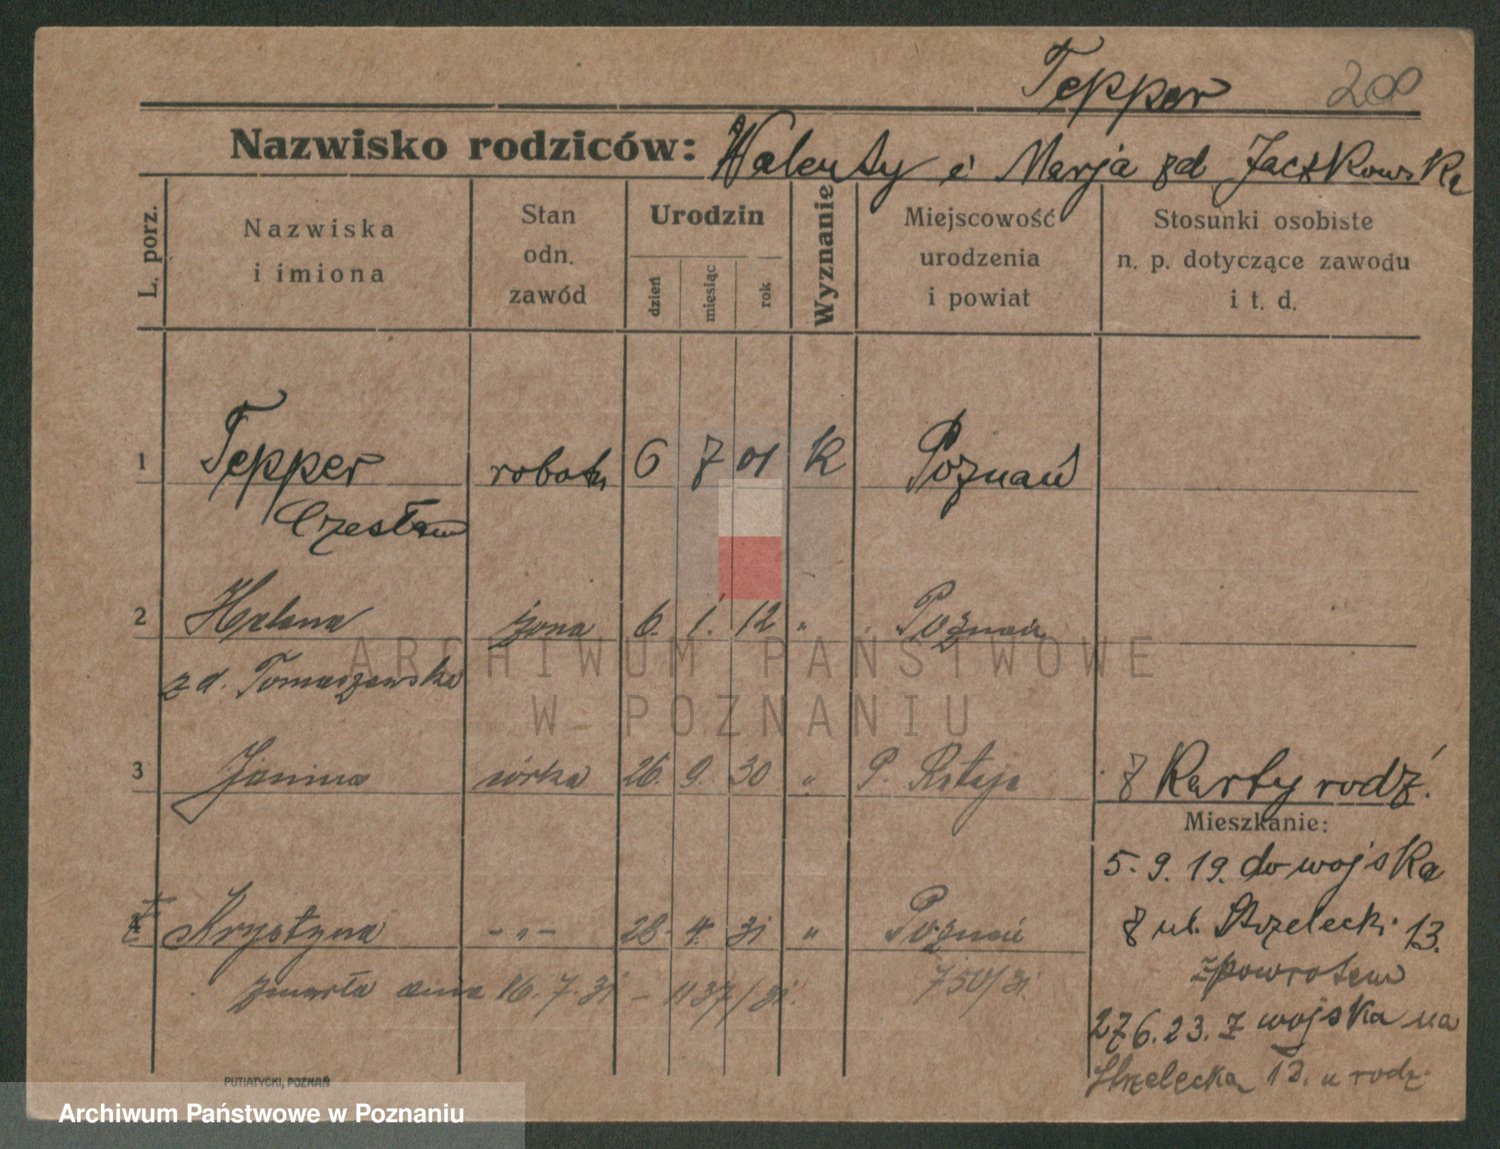 Tepper 200
Nazwisko rodziców: Walenty i Marja zd Jaczkowska
L. porz.
Nazwiska i imiona
Stan odn. zawód
Urodzin
dzień
miesiąc
rok
Wyznanie
Miejscowość urodzenia i powiat
Stosunki osobiste n. p. dotyczące zawodu i t. d.
1 Tepper robotn 6 7 01 K Poznań
Czesław
2 Helena żona 6. 1. 12 " Poznań
zd. Tomaszewska
3 Janina córka 26. 9. 30 " P. Rataje
z Karty rodz.
Mieszkanie:
5. 9. 19. do wojska
4 Krystyna - " - 28. 4. 31 " Poznań
z ul. Strzelecki 13.
zmarła dnia 16. 7. 31 - 1137/31. 750/31.
zpowrotem
27 6. 23. z wojska na
Strzelecka 13. u rodz.
PUTIATYCKI, POZNAŃ
ARCHIWUM PAŃSTWOWE
W POZNANIU
Archiwum Państwowe w Poznaniu